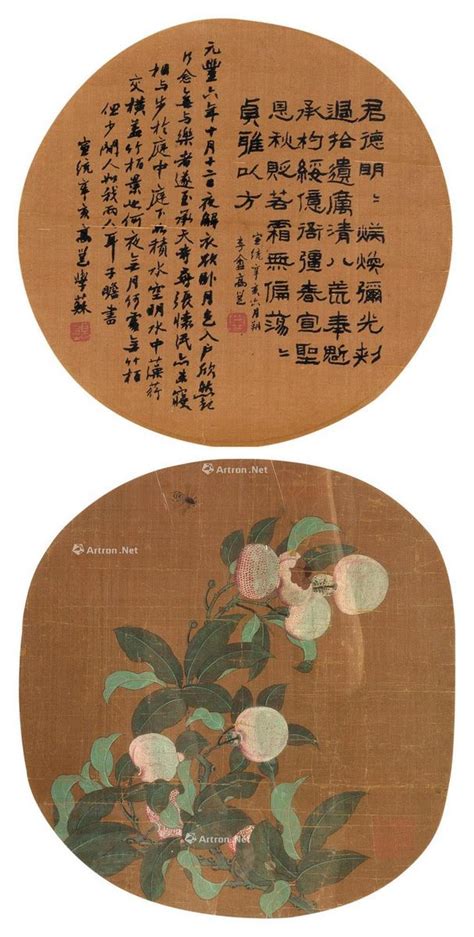 君德明〻炳煥彌光刾
過拾遺厲清八荒奉魁
承杓綏億衙彊春宣聖
恩秋貶若霜無偏蕩〻
貞雅以方
宣統辛亥六月朔
李盦高邕
元豐六年十月十二日夜解衣欲臥月色入戶欣然起
行念無與樂者遂至承天寺尋張懷民亦未寢
相與步於庭中庭下如積水空明水中藻荇
交橫蓋竹柏景也何夜無月何處無竹柏
但少閒人如我兩人耳子瞻書
宣統辛亥高邕學蘇
Artron.Net
Artron.Net
Artron.Net